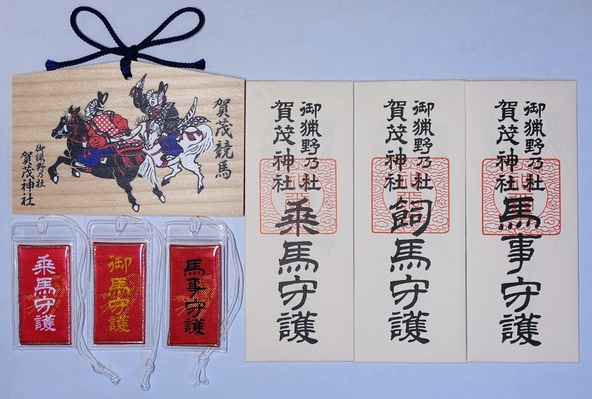 賀茂競馬
御猟野乃杜
賀茂神社
乗馬守護
御馬守護
馬事守護
御猟野乃杜
賀茂神社
乗馬守護
御猟野乃杜
賀茂神社
飼馬守護
御猟野乃杜
賀茂神社
馬事守護